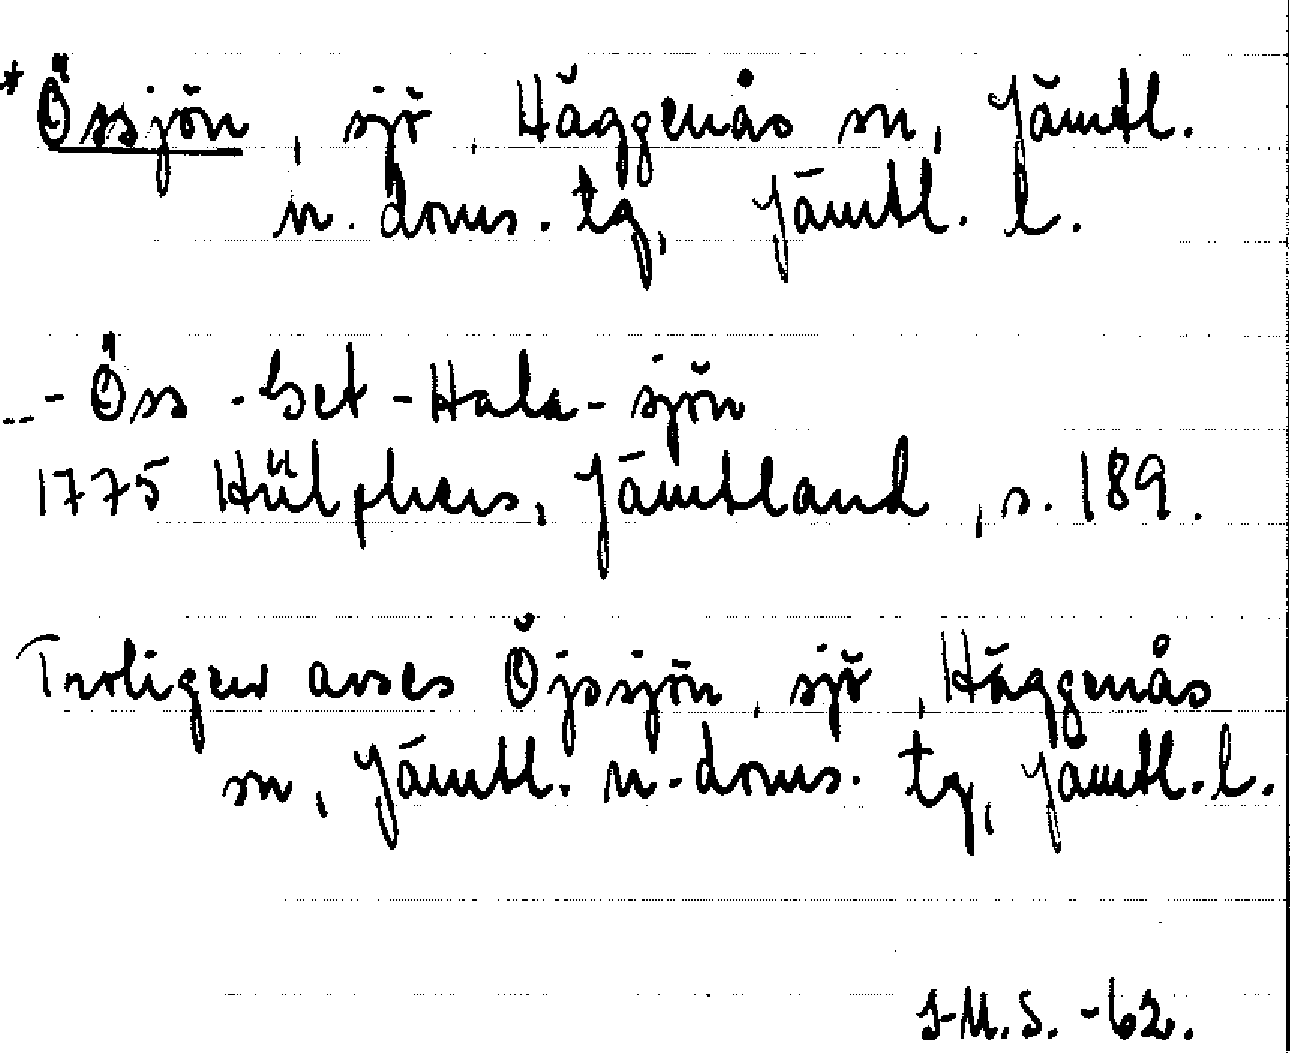 *Össjön, sjö, Häggenås sn, Jämtl.
n. doms. tg, Jämtl. l.
-- - Öss -Get -Hala- sjön
1775 Hülphers, Jämtland, s. 189.
Troligen avses Öjsjön, sjö, Häggenås
sn, Jämtl. n. doms. tg, Jämtl. l.
I-M.S. -62.